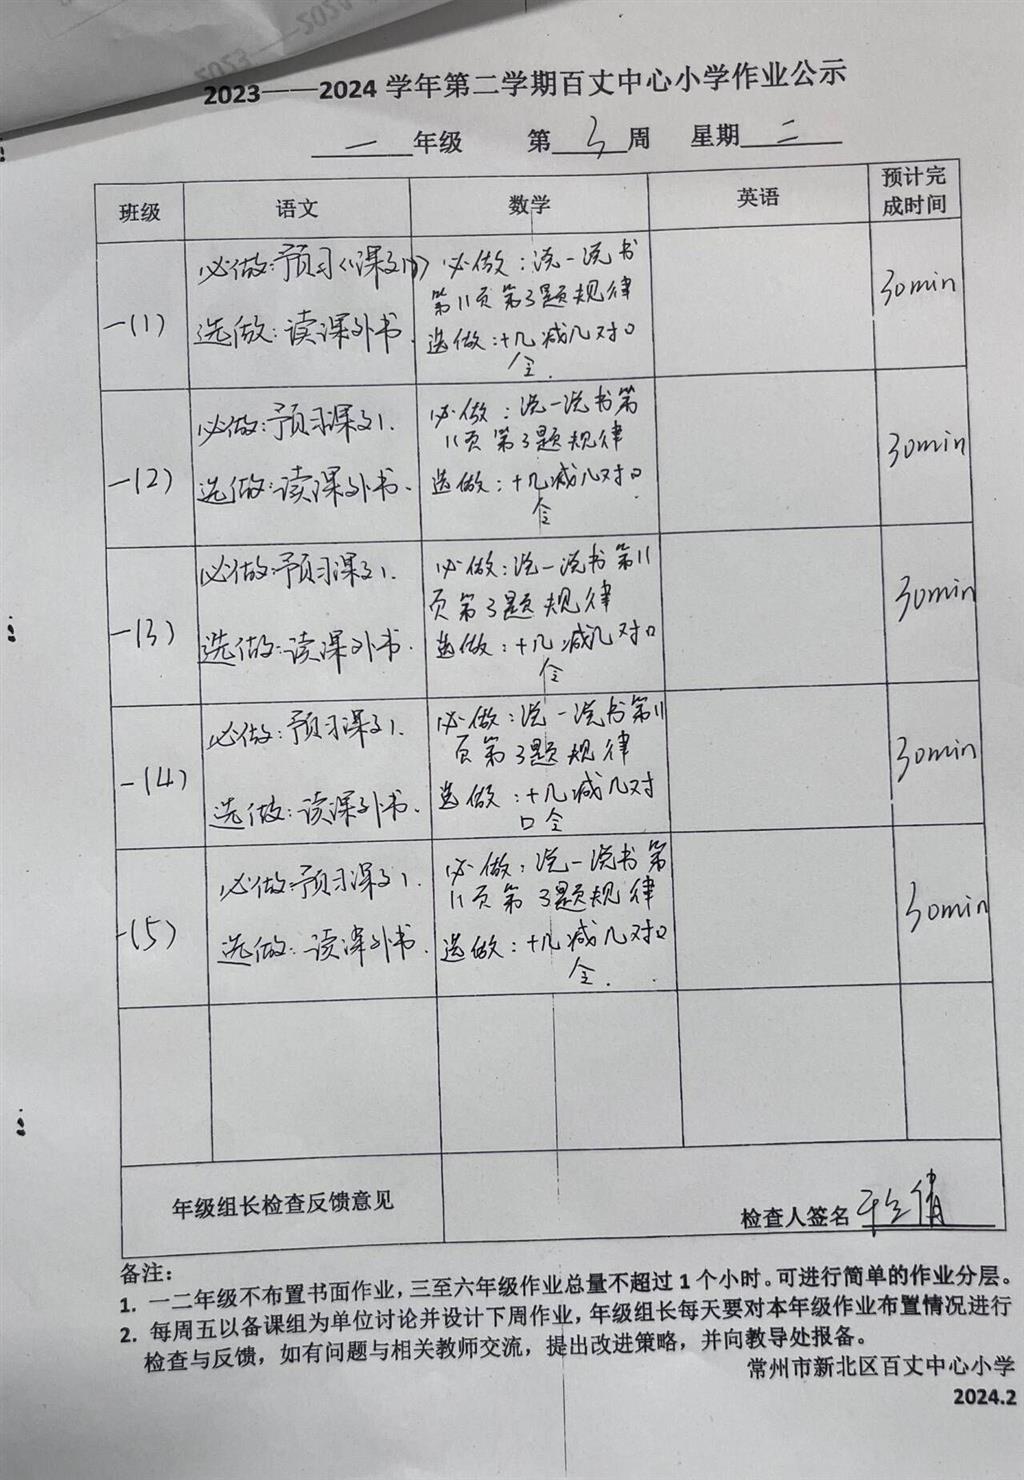 2023——2024 学年第二学期百丈中心小学作业公示
一 年级 第 3 周 星期 二
班级 语文 数学 英语 预计完成时间
一(1)
必做:预习《课文1》
选做:读课外书.
必做:说一说书
第11页第3题规律
选做:十几减几对口
令.
30min
一(2)
必做:预习课文1.
选做:读课外书.
必做:说一说书第
11页第3题规律
选做:十几减几对口
令
30min
一(3)
必做:预习课文1.
选做:读课外书.
必做:说一说书第11
页第3题规律
选做:十几减几对口
令
30min
一(4)
必做:预习课文1.
选做:读课外书.
必做:说一说书第11
页第3题规律
选做:十几减几对
口令
30min
一(5)
必做:预习课文1.
选做:读课外书.
必做:说一说书第
11页第3题规律
选做:十几减几对口
令.
30min
年级组长检查反馈意见
检查人签名
备注:
1. 一二年级不布置书面作业,三至六年级作业总量不超过 1 个小时。可进行简单的作业分层。
2. 每周五以备课组为单位讨论并设计下周作业,年级组长每天要对本年级作业布置情况进行
检查与反馈,如有问题与相关教师交流,提出改进策略,并向教导处报备。
常州市新北区百丈中心小学
2024.2